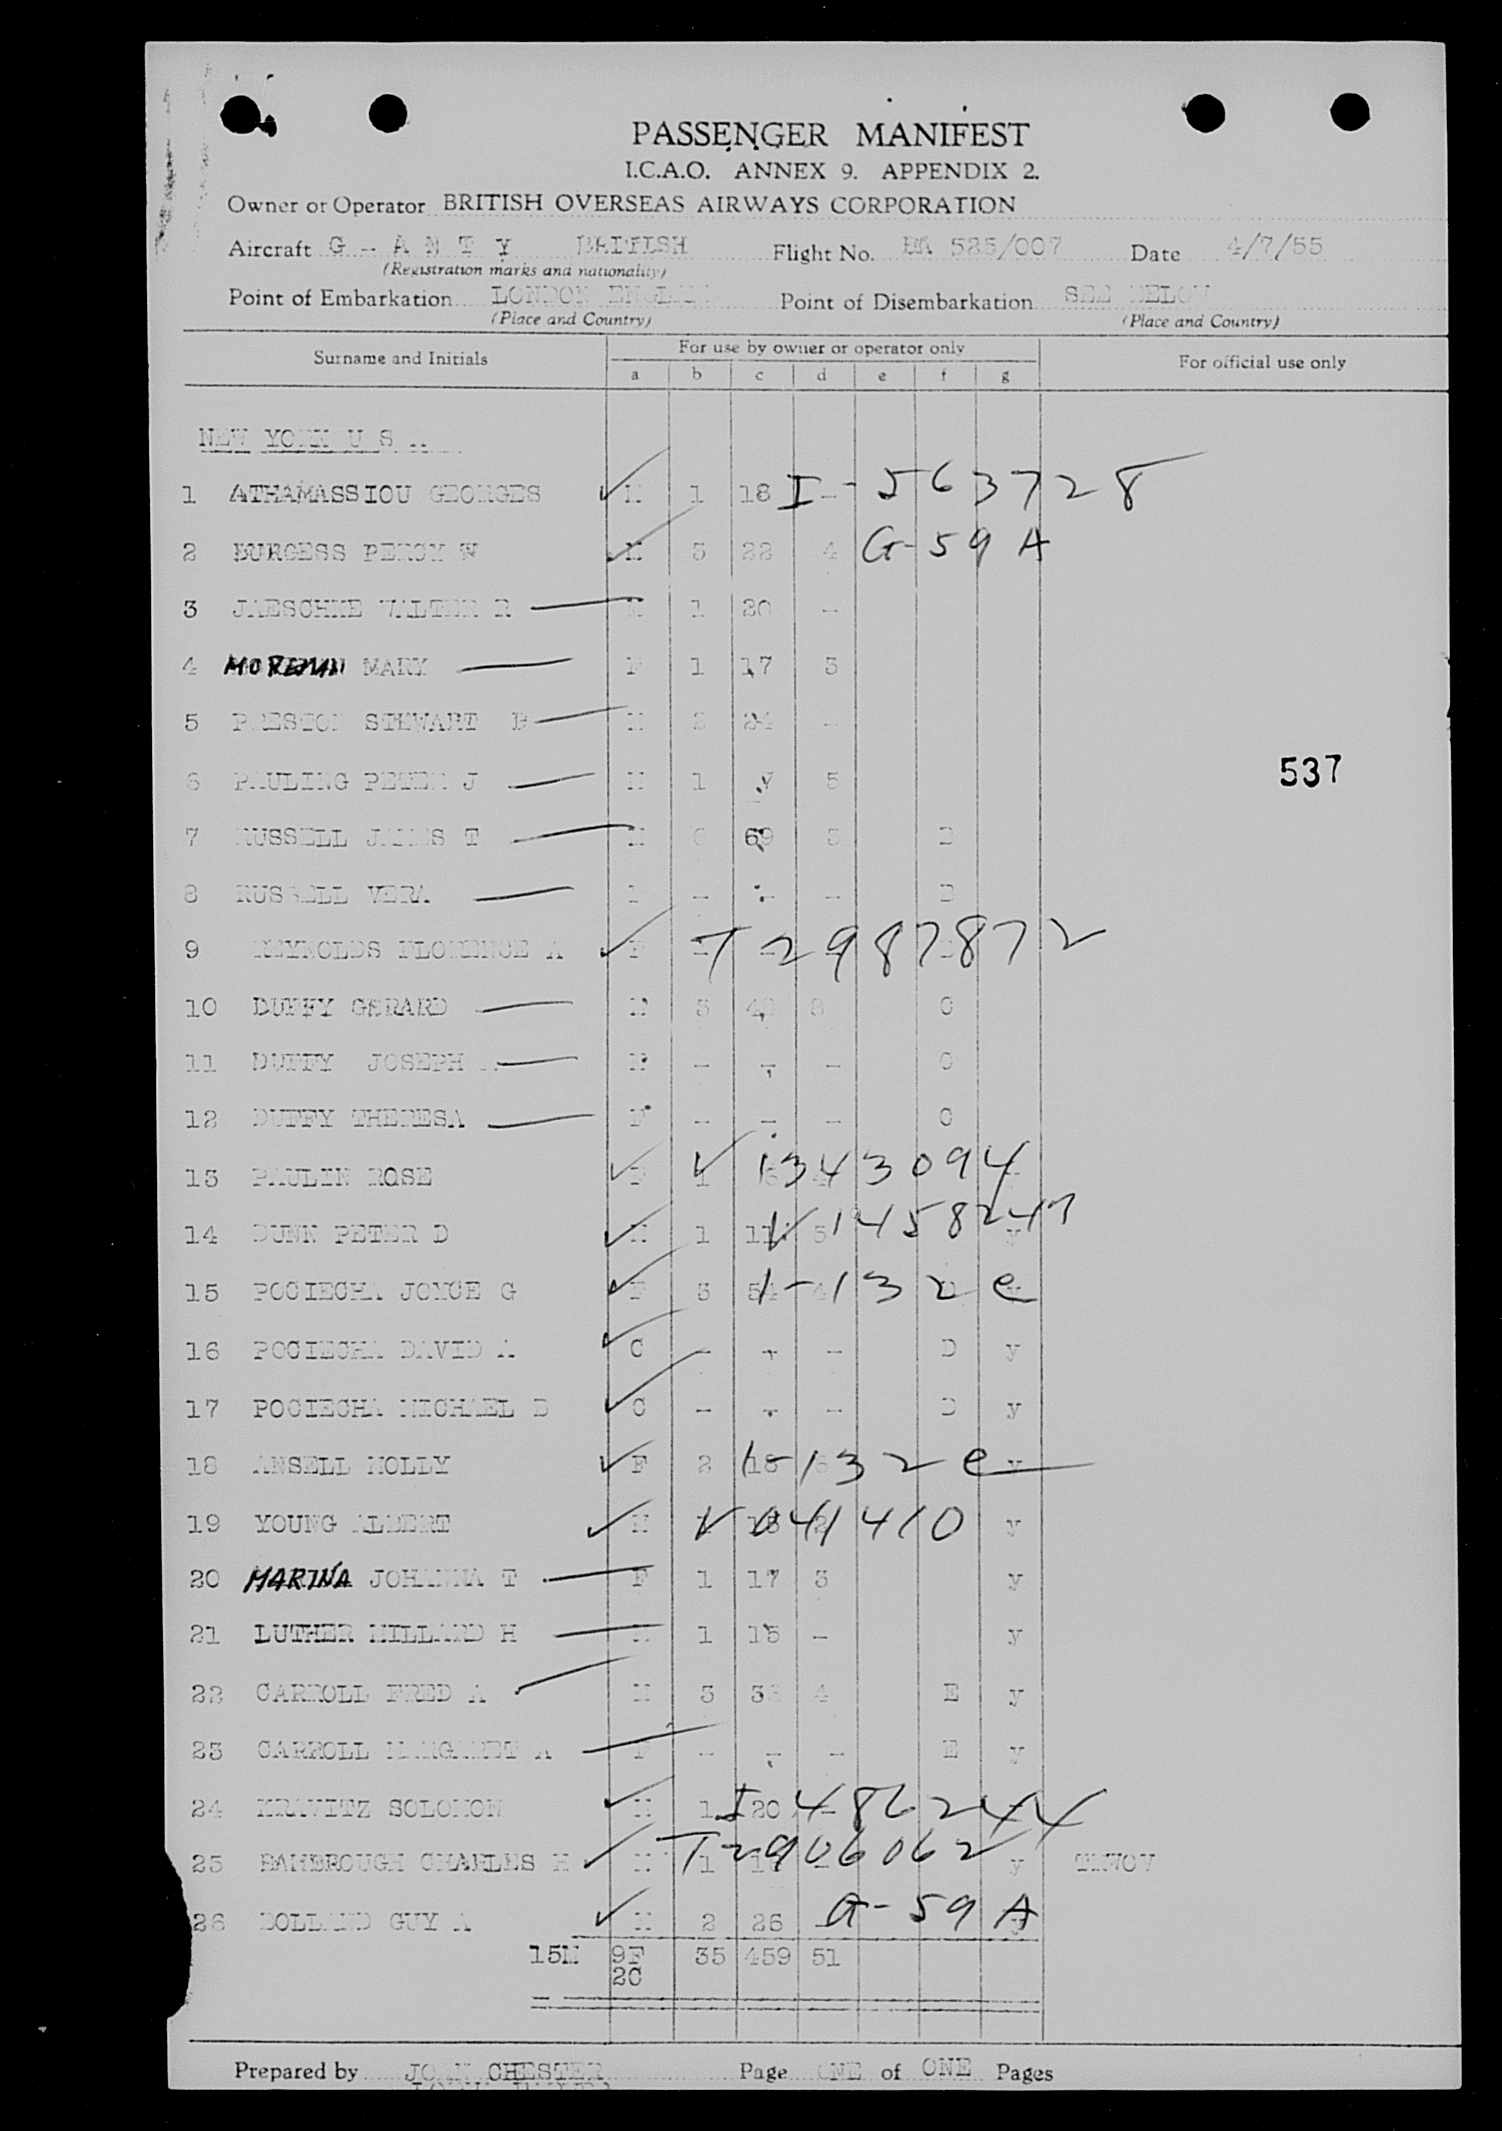 PASSENGER MANIFEST
I.C.A.O. ANNEX 9. APPENDIX 2.
Owner or Operator BRITISH OVERSEAS AIRWAYS CORPORATION
Aircraft G - A N T Y BRITISH Flight No. BA 525/007 Date 4/7/55
(Registration marks and nationality)
Point of Embarkation LONDON ENGLAND Point of Disembarkation SEE BELOW
(Place and Country) (Place and Country)
Surname and Initials For use by owner or operator only For official use only
a b c d e f g
NEW YORK U S A
1 ATHAMASSIOU GEORGES M 1 18 - I-563728
2 BURGESS PERCY W M 3 22 4 G-59 A
3 JAESCHKE WALTER R M 1 20 -
4 MOREMAN MARY F 1 17 3
5 PRESTON STEWART M 2 24 -
6 PAULING PETER J M 1 5
537
7 RUSSELL JAMES T M 69 D
8 RUSSELL VERA - - - D
9 REYNOLDS FLORENCE A F T2987872
10 DUFFY GERARD M 3 8 C
11 DUFFY JOSEPH - - - C
12 DUFFY THERESA F - - - C
13 PAULIN ROSE F 1 V 1343094
14 DUNN PETER D M 1 11 5 V 1458247 y
15 POCIECHA JOYCE G F 3 54 4 1-132e
16 POCIECHA DAVID A C - - - D y
17 POCIECHA MICHAEL D C - - - D y
18 ANSELL MOLLY F 2 18 1-132e y
19 YOUNG ALBERT M V 041410 y
20 MARINA JOHANNA T F 1 17 3 y
21 LUTHER MILLARD H M 1 15 - y
22 CARROLL FRED A M 3 33 4 E y
23 CARROLL MARGARET A F - - - E y
24 KRAVITZ SOLOMON M 1 20 - I 486244
25 BAMBROUGH CHARLES H M 1 T2906062 y
26 DOLLAND GUY A M 2 26 - G-59 A y
15M 9F 35 459 51
2C
Prepared by JOAN CHESTER Page ONE of ONE Pages